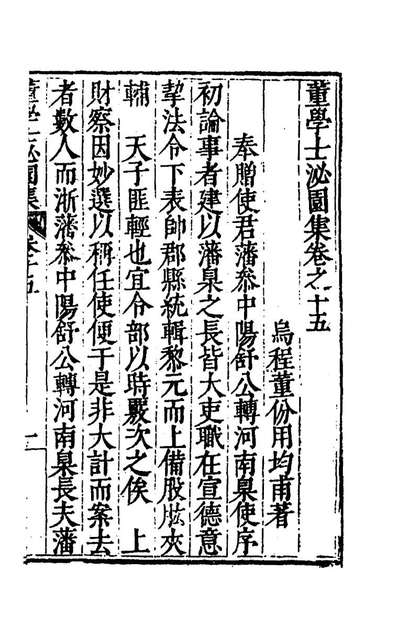 董學士泌園集卷之十五
烏程董份用均甫著
奉贈使君藩叅中陽舒公轉河南臬使序
初論事者建以藩臬之長皆大吏職在宣德意
挈法令下表帥郡縣統輯黎元而上備股肱夾
輔　天子匪輕也宜令部以時覈次之俟　上
財察因妙選以稱任使便于是非大計而案去
者數人而浙藩叅中陽舒公轉河南臬長夫藩
董學士泌園集　卷十五　一